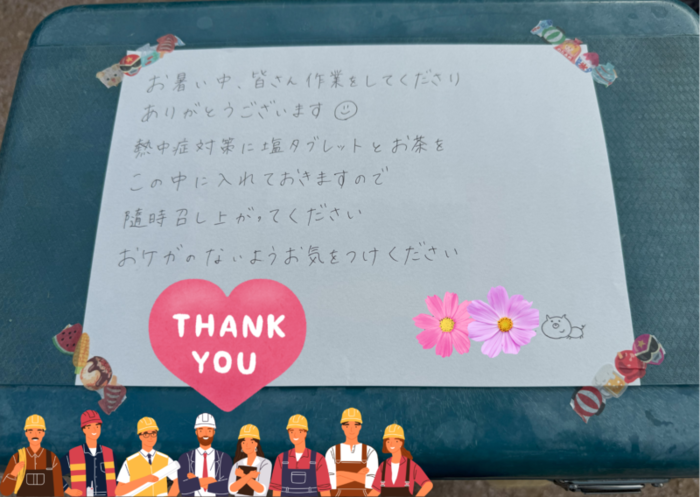 お暑い中、皆さん作業をしてくださり
ありがとうございます
熱中症対策に塩タブレットとお茶を
この中に入れておきますので
随時召し上がってください
おケガのないようお気をつけください
THANK
YOU